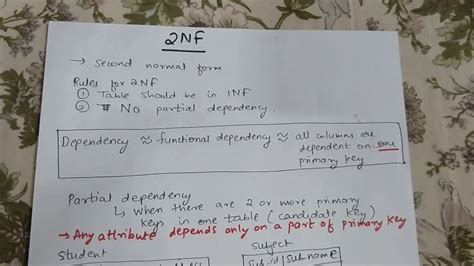 2NF
→ Second normal form.
Rules for 2NF
① Table should be in 1NF
② No partial dependency.
Dependency ≈ functional dependency ≈ all columns are
dependent on one
primary key
Partial dependency
↳ When there are 2 or more primary
keys in one table (candidate key)
→ Any attribute depends only on a part of primary key
Student
Subject
Sub-id | Sub name